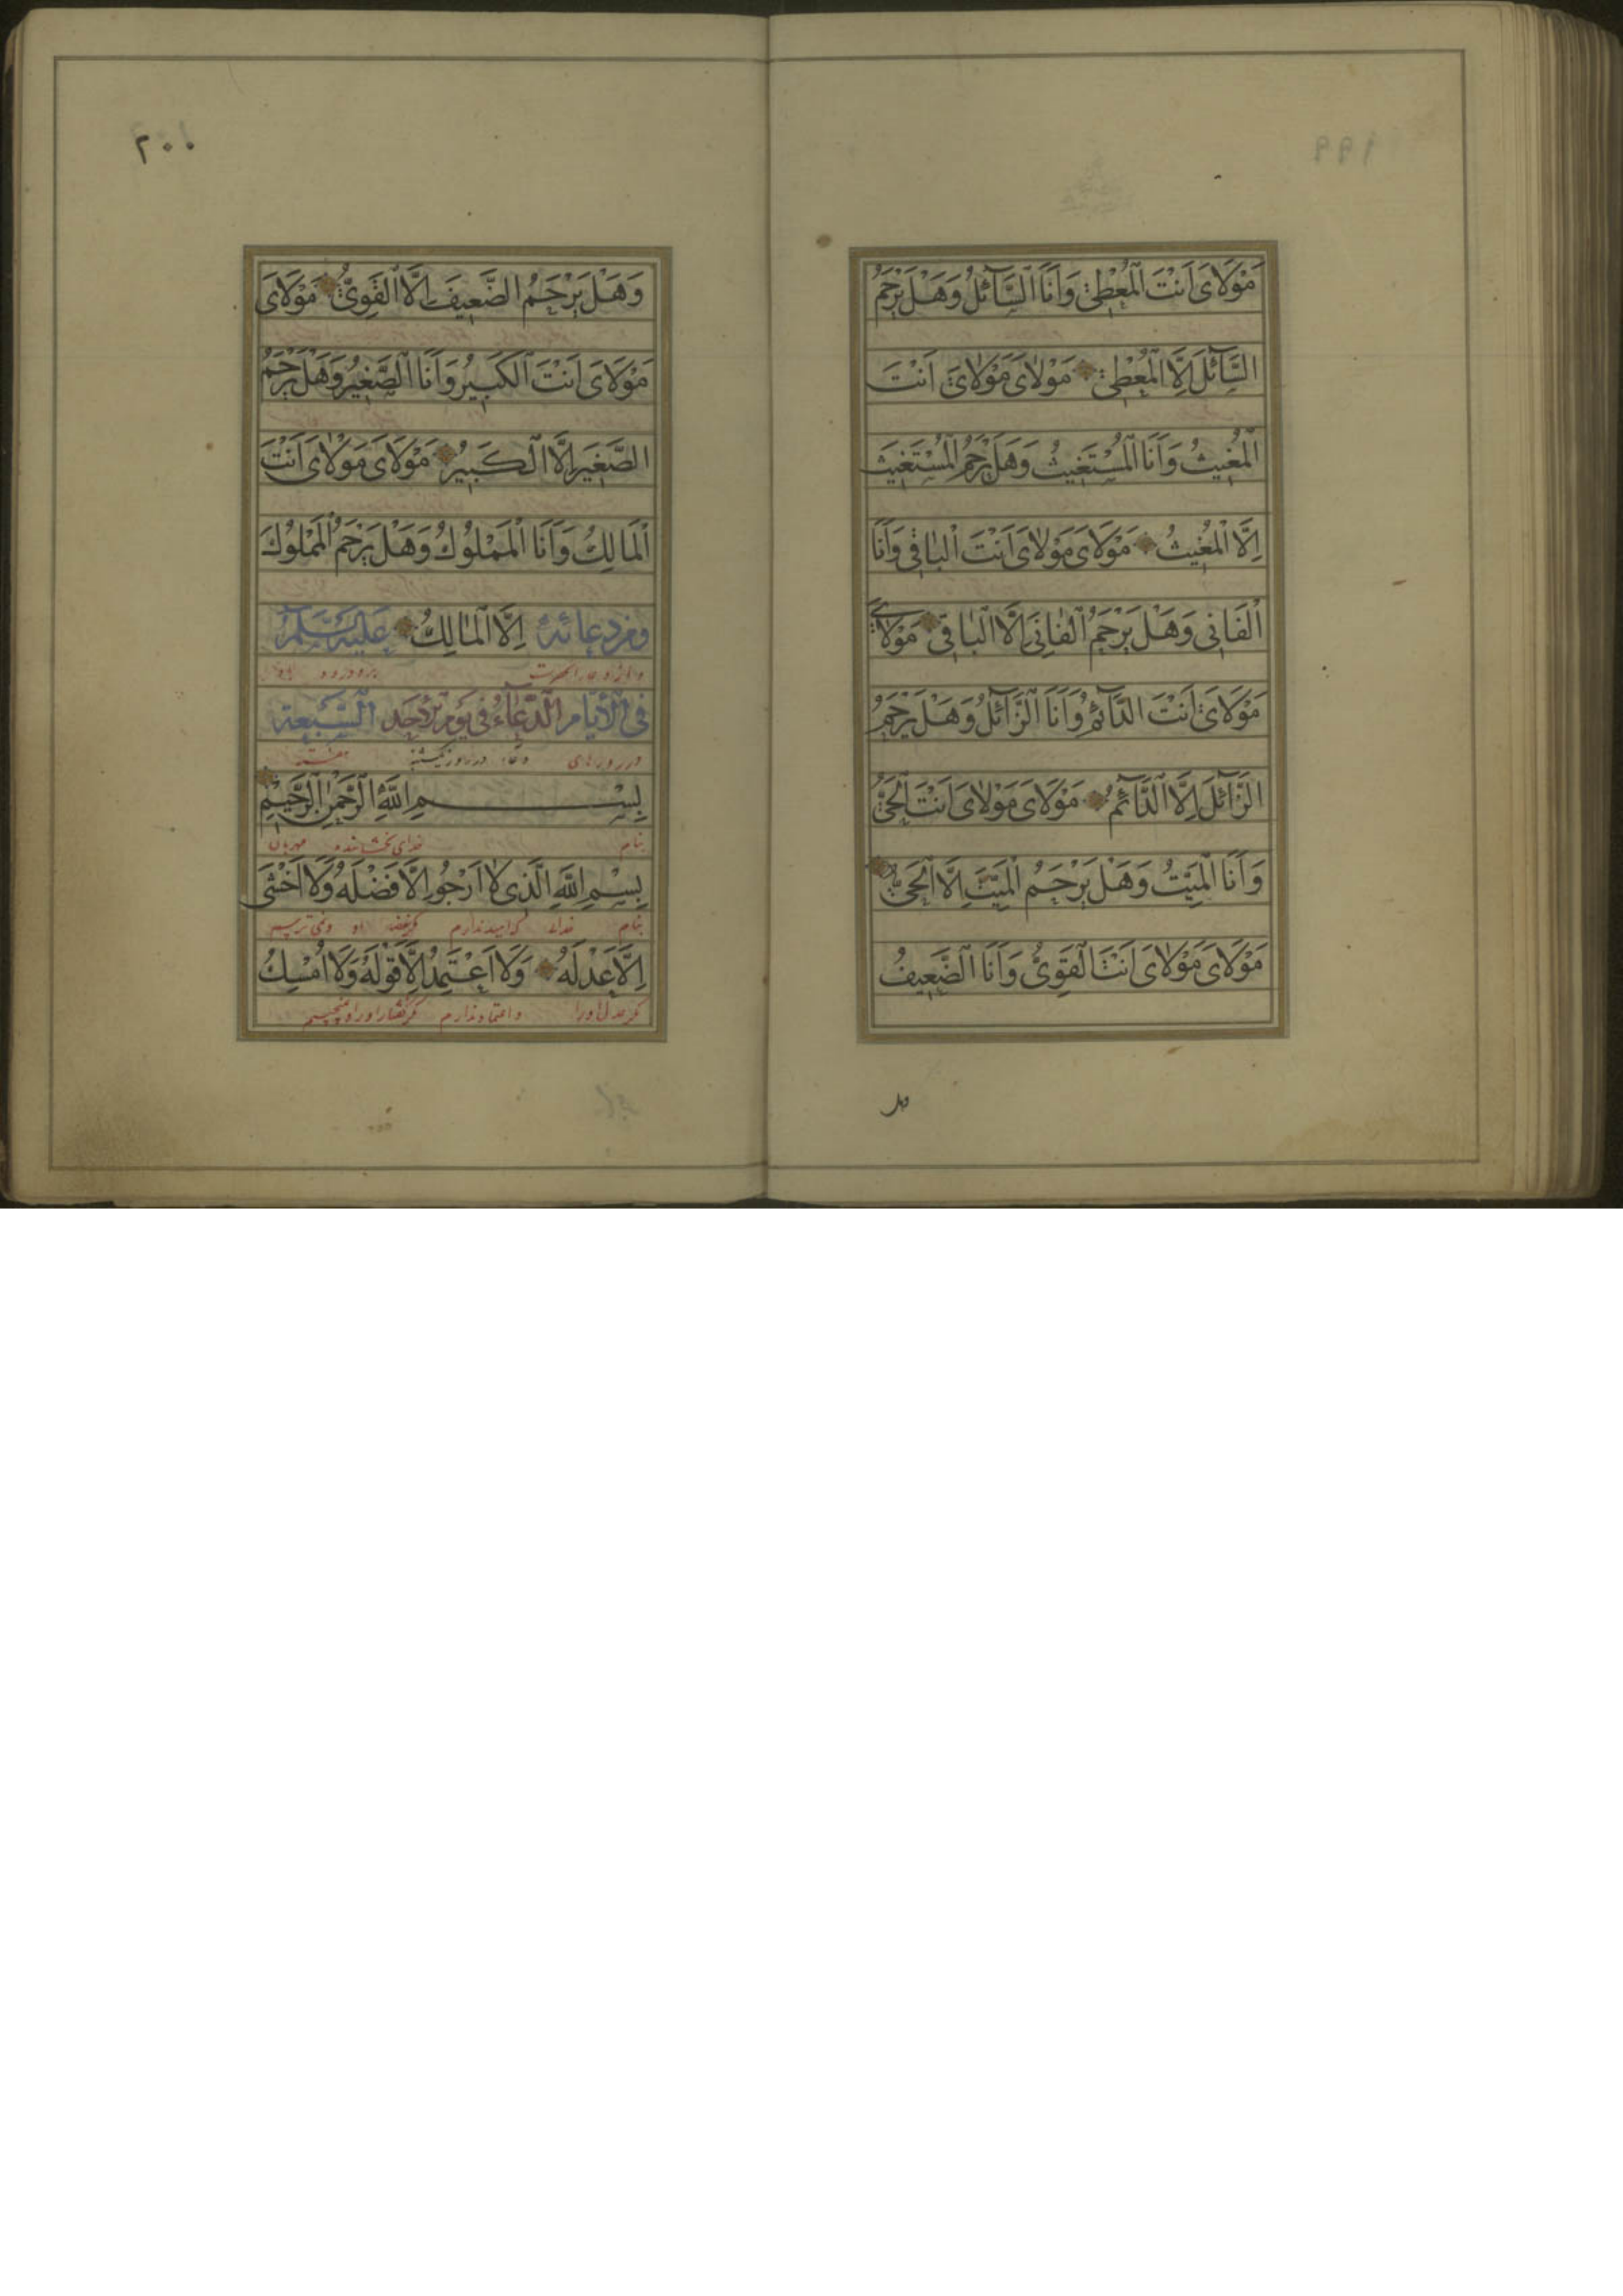 ۱۹۹
مَوْلَایَ اَنْتَ الْمُعْطِیْ وَاَنَا السَّآئِلُ وَهَلْ یَرْحَمُ
السَّآئِلَ اِلَّا الْمُعْطِیْ مَوْلَایَ مَوْلَایَ اَنْتَ
الْمُغِیثُ وَاَنَا الْمُسْتَغِیثُ وَهَلْ یَرْحَمُ الْمُسْتَغِیثَ
اِلَّا الْمُغِیثُ مَوْلَایَ مَوْلَایَ اَنْتَ الْبَاقِی وَاَنَا
الْفَانِی وَهَلْ یَرْحَمُ الْفَانِیَ اِلَّا الْبَاقِی مَوْلَایَ
مَوْلَایَ اَنْتَ الدَّآئِمُ وَاَنَا الزَّآئِلُ وَهَلْ یَرْحَمُ
الزَّآئِلَ اِلَّا الدَّآئِمُ مَوْلَایَ مَوْلَایَ اَنْتَ الْحَیُّ
وَاَنَا الْمَیِّتُ وَهَلْ یَرْحَمُ الْمَیِّتَ اِلَّا الْحَیُّ
مَوْلَایَ مَوْلَایَ اَنْتَ الْقَوِیُّ وَاَنَا الضَّعِیفُ
وهل
۲۰۰
وَهَلْ یَرْحَمُ الضَّعِیفَ اِلَّا الْقَوِیُّ مَوْلَایَ
مَوْلَایَ اَنْتَ الْکَبِیرُ وَاَنَا الصَّغِیرُ وَهَلْ یَرْحَمُ
الصَّغِیرَ اِلَّا الْکَبِیرُ مَوْلَایَ مَوْلَایَ اَنْتَ
الْمَالِكُ وَاَنَا الْمَمْلُوكُ وَهَلْ یَرْحَمُ الْمَمْلُوكَ
ومن دعائه اِلَّا الْمَالِكُ علیه سلم
فی الایام الدعاء فی یوم الاحد السبعة
در روزهای دعاء در روز یکشنبه هفته
بِسْمِ اللّٰهِ الرَّحْمٰنِ الرَّحِیْمِ
بنام خدای بخشاینده مهربان
بِسْمِ اللّٰهِ الَّذِی لَا اَرْجُو اِلَّا فَضْلَهُ وَلَا اَخْشٰی
بنام خدای که امید ندارم مگر فضل او و نمی ترسم
اِلَّا عَدْلَهُ وَلَا اَعْتَمِدُ اِلَّا قَوْلَهُ وَلَا اُمْسِكُ
مگر عدل او را و اعتماد ندارم مگر گفتار او را و